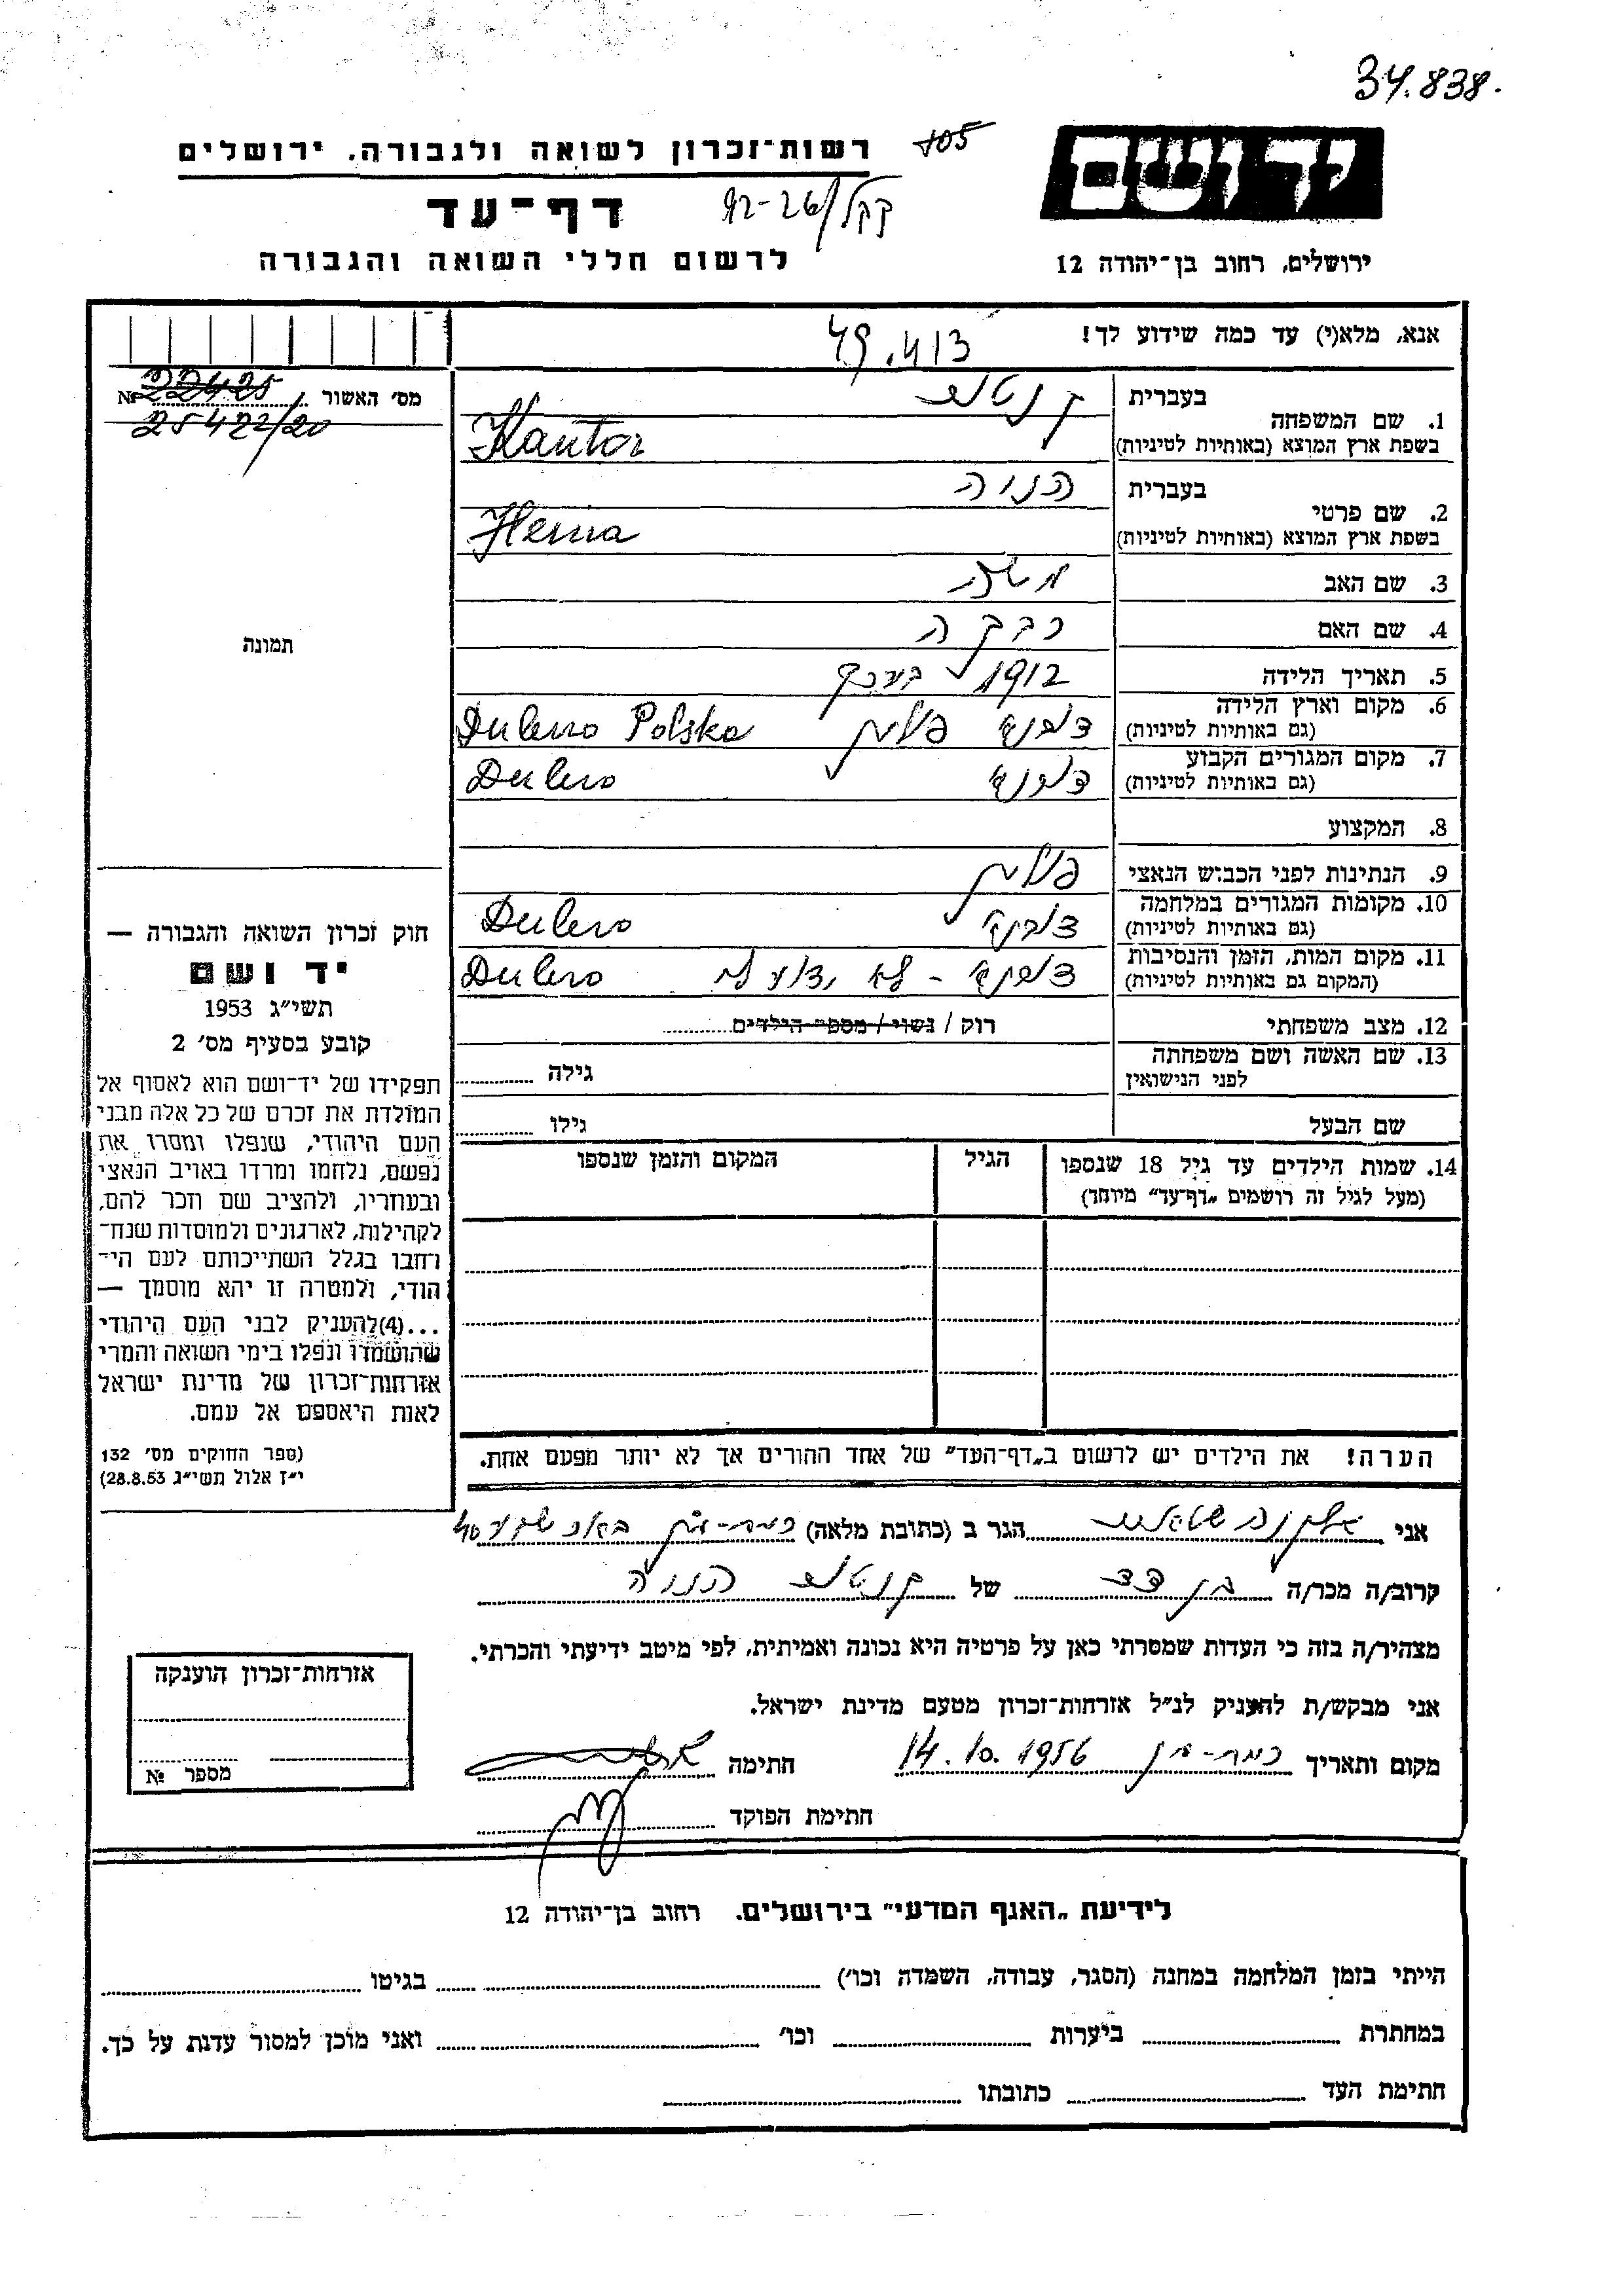 34.838.
ידושם
ירושלים, רחוב בן־יהודה 12
רשות־זכרון לשואה ולגבורה, ירושלים
105
דף־עד
קקל/92-26
לרשום חללי השואה והגבורה
אנא, מלא(י) עד כמה שידוע לך!
49.413
מס׳ האשור № 22425
25422/20
תמונה
1. שם המשפחה בעברית קנטור
בשפת ארץ המוצא (באותיות לטיניות) Kantor
2. שם פרטי בעברית הניה
בשפת ארץ המוצא (באותיות לטיניות) Henia
3. שם האב משה
4. שם האם רבקה
5. תאריך הלידה 1912 בערך
6. מקום וארץ הלידה (גם באותיות לטיניות) דובנא פולין Dubno Polska
7. מקום המגורים הקבוע (גם באותיות לטיניות) דובנא Dubno
8. המקצוע
9. הנתינות לפני הכבוש הנאצי פולין
10. מקומות המגורים במלחמה (גם באותיות לטיניות) דובנא Dubno
11. מקום המות, הזמן והנסיבות (המקום גם באותיות לטיניות) דובנא - לא ידוע לי Dubno
12. מצב משפחתי רוק / נשוי / מספר הילדים
13. שם האשה ושם משפחתה לפני הנישואין גילה
שם הבעל גילו
14. שמות הילדים עד גיל 18 שנספו הגיל המקום והזמן שנספו
(מעל לגיל זה רושמים „דף־עד״ מיוחד)
הערה! את הילדים יש לרשום ב„דף־העד״ של אחד ההורים אך לא יותר מפעם אחת.
חוק זכרון השואה והגבורה —
יד ושם
תשי״ג 1953
קובע בסעיף מס׳ 2
תפקידו של יד־ושם הוא לאסוף אל
המולדת את זכרם של כל אלה מבני
העם היהודי, שנפלו ומסרו את
נפשם, נלחמו ומרדו באויב הנאצי
ובעוזריו, ולהציב שם וזכר להם,
לקהילות, לארגונים ולמוסדות שנח־
רחבו בגלל השתייכותם לעם הי־
הודי, ולמטרה זו יהא מוסמך —
...(4)להעניק לבני העם היהודי
שהושמדו ונפלו בימי השואה והמרי
אזרחות־זכרון של מדינת ישראל
לאות היאספם אל עמם.
(ספר החוקים מס׳ 132
י״ז אלול תשי״ג 28.8.53)
אני הגר ב (כתובת מלאה) רמת-גן
קרוב/ה מכר/ה בן דד של קנטור הניה
מצהיר/ה בזה כי העדות שמסרתי כאן על פרטיה היא נכונה ואמיתית, לפי מיטב ידיעתי והכרתי.
אני מבקש/ת להעניק לנ״ל אזרחות־זכרון מטעם מדינת ישראל.
מקום ותאריך רמת-גן 14.10.1956 חתימה
חתימת הפוקד
אזרחות־זכרון הוענקה
מספר №
לידיעת „האגף המדעי״ בירושלים. רחוב בן־יהודה 12
הייתי בזמן המלחמה במחנה (הסגר, עבודה, השמדה וכו׳) בגיטו
במחתרת ביערות וכו׳ ואני מוכן למסור עדות על כך.
חתימת העד כתובתו